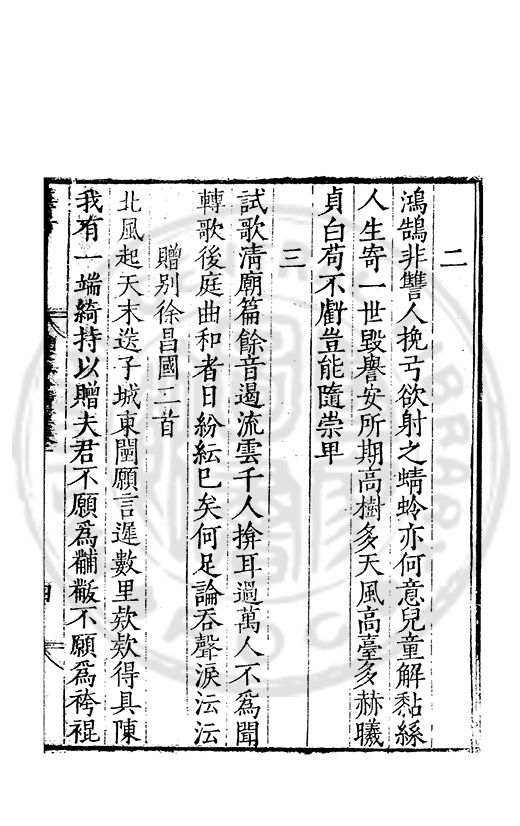 二
鴻鵠非讐人挽弓欲射之蜻蛉亦何意兒童解黏絲
人生寄一世毀譽安所期高樹多天風高臺多赫曦
貞白苟不虧豈能隨崇卑
三
試歌清廟篇餘音遏流雲千人揜耳過萬人不爲聞
轉歌後庭曲和者日紛紜已矣何足論吞聲淚沄沄
贈別徐昌國二首
北風起天末送子城東闉願言遲數里欵欵得具陳
我有一端綺持以贈夫君不願爲黼黻不願爲袴裩
四